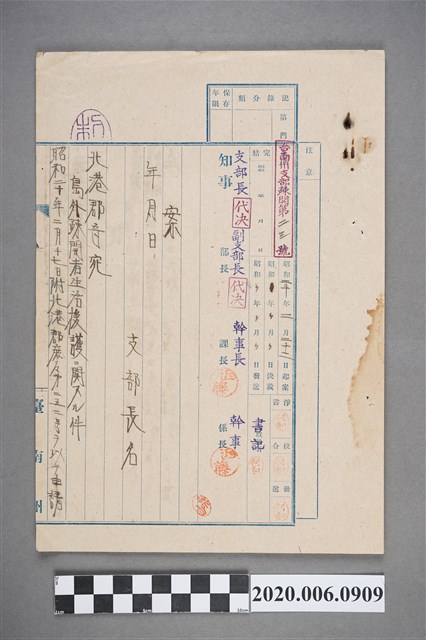 記錄分類
保存年限
第 門
注意
台南州支部疎開第二三號
完結 昭和 年 月 日
昭和二十年二月二十二日起案
昭和 年 月 日決裁
昭和 年 月 日發送
淨書
校合
發送
支部長 代決
副支部長 代決
幹事長
幹事
書記
知事
部長
課長
係長
近藤
近藤
案
年月日
支部長名
北港郡守宛
島外疎開者生活援護ニ関スル件
昭和二十年二月十七日附北港郡庶
臺南州
2020.006.0909